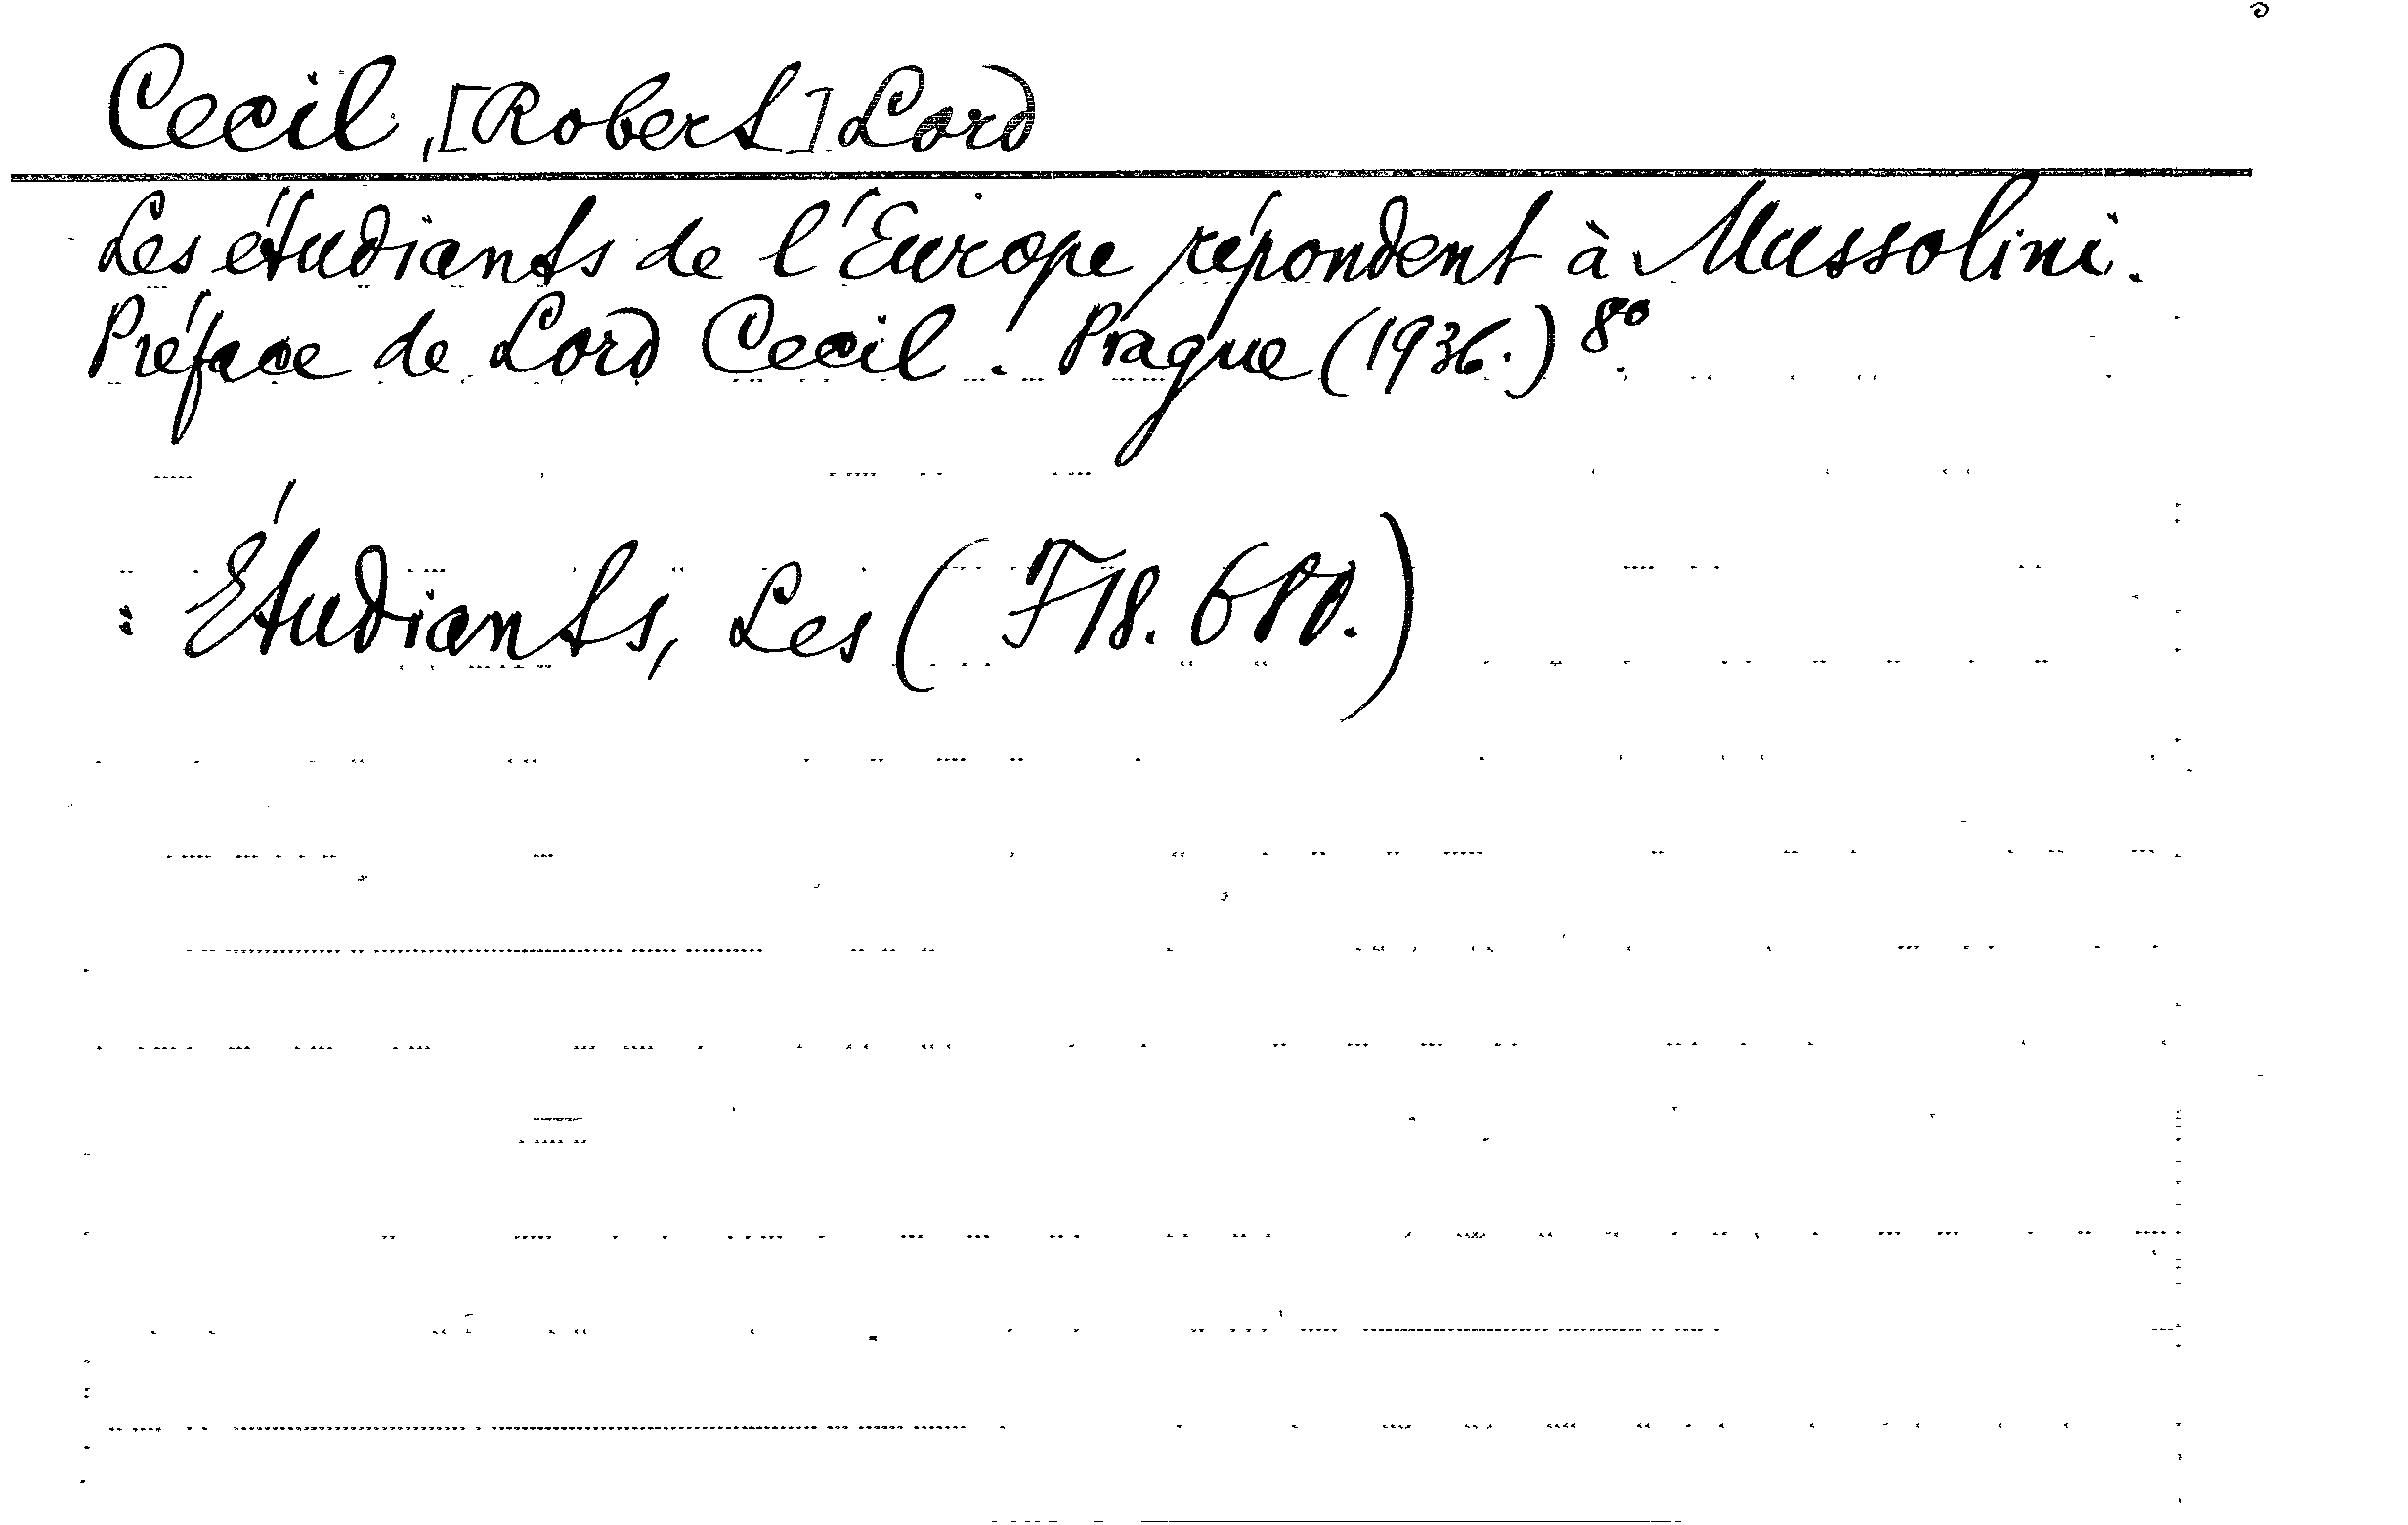 Cecil, [Robert] Lord
Les étudiants de l'Europe répondent à Mussolini.
Préface de Lord Cecil. Prague (1936.) 8°.
: Étudiants, Les (F18. 680.)